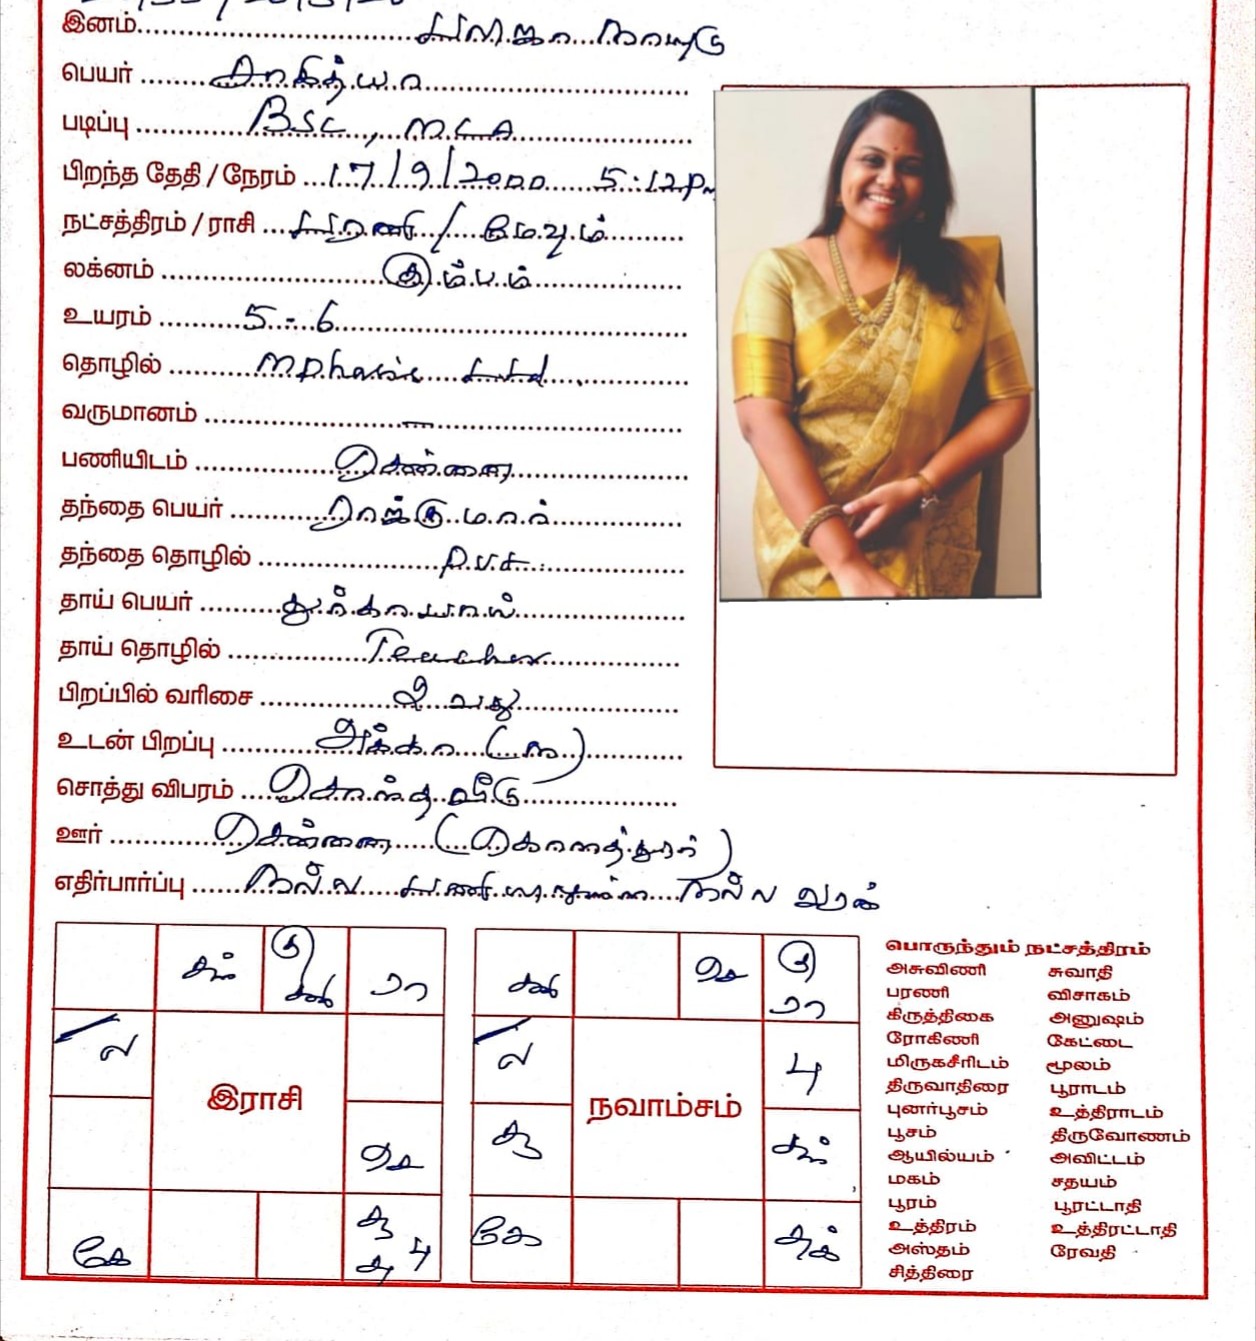 இனம் பலிஜா நாயுடு
பெயர் ஆதித்யா
படிப்பு BSC, MCA
பிறந்த தேதி / நேரம் 17/9/2000 5:12 P
நட்சத்திரம் / ராசி பரணி / மேஷம்
லக்னம் கும்பம்
உயரம் 5-6
தொழில் Mphasis Ltd
வருமானம் —
பணியிடம் சென்னை
தந்தை பெயர் ராஜ்குமார்
தந்தை தொழில்
தாய் பெயர் துர்காயாஸ்
தாய் தொழில் Teacher
பிறப்பில் வரிசை 2 வது
உடன் பிறப்பு அக்கா
சொத்து விபரம் சொந்த வீடு
ஊர் சென்னை (கொளத்தூர்)
எதிர்பார்ப்பு நல்ல நல்ல வரன்
சந் குரு சனி ரா
ல
இராசி
செ
கே சூ சு பு
சனி செ குரு ரா
ல பு
நவாம்சம்
சூ சந்
கே சுக்
பொருந்தும் நட்சத்திரம்
அசுவிணி சுவாதி
பரணி விசாகம்
கிருத்திகை அனுஷம்
ரோகிணி கேட்டை
மிருகசீரிடம் மூலம்
திருவாதிரை பூராடம்
புனர்பூசம் உத்திராடம்
பூசம் திருவோணம்
ஆயில்யம் அவிட்டம்
மகம் சதயம்
பூரம் பூரட்டாதி
உத்திரம் உத்திரட்டாதி
அஸ்தம் ரேவதி
சித்திரை